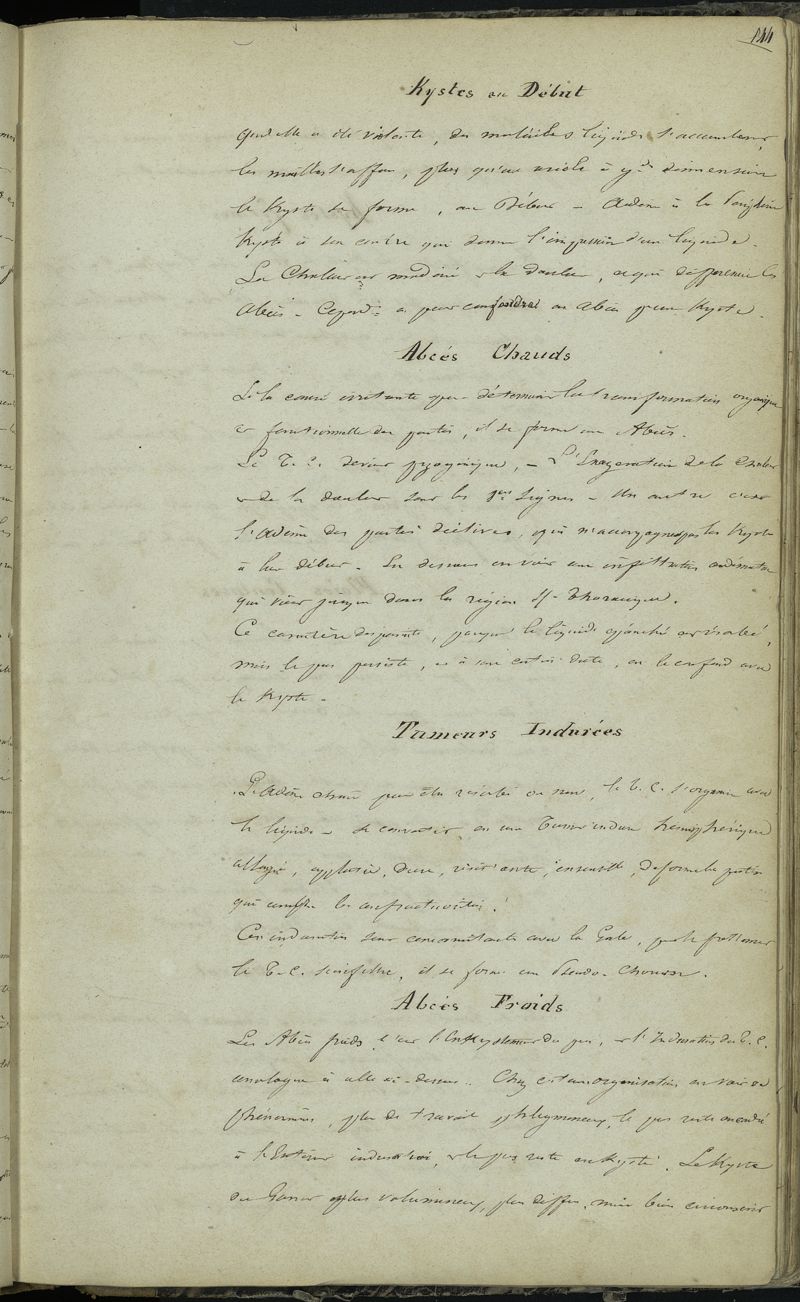 144
Kystes au Début
quand elle a été violente, des matières liquides s'accumulent,
les mailles, plus qu'une à gde dimension
le Kyste se forme, au Début - Œdème à la
Kyste à son centre qui donne l'impression d'un liquide.
La Chaleur est modérée & la douleur, ce qui différencie les
Abcès - Cepend: on peut confondre un Abcès & un Kyste.
Abcés Chauds
Si la cause irritante peut déterminer la transformation organique
et fonctionnelle des parties, il se forme un Abcès.
Le T. C. devient pyogénique, - L'Exagération de la Chaleur
& de la douleur sont les 1ers signes - Un autre c'est
l'Œdème des parties déclives, qui n'accompagne pas les Kystes
à leur début - En dessous on voit une infiltration œdémateuse
qui vient jusque dans la région St-Thoracique.
Ce caractère disparaît, parce que le liquide épanché est résorbé,
mais le pus persiste, & à une certaine date, on le confond avec
le Kyste -
Tumeurs Indurées
L'Œdème chaud peut être résorbé ou non, le T. C. s'organise avec
le liquide & se convertit en une Tumeur indurée hémisphérique
allongée, applatie, dure, insensible, déforme les parties
qui comble les anfractuosités.
Ces indurations sont concomitantes avec la Gale, par le frottement
le T. C. s'infiltre, il se forme un Pseudo-
Abcés Froids
Les Abcès froids c'est l'Enkystement du pus, & l'Induration du T. C.
analogue à celle ci-dessus. Chez est une organisation, en voie de
phénomènes, plus de travail phlegmoneux, le pus reste
à l'Intérieur induration, & le pus reste enkysté. Le Kyste
du Garrot est plus volumineux, plus diffus, mais bien circonscrit